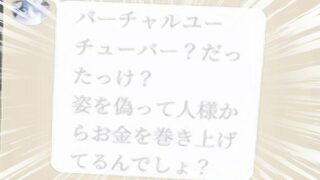 バーチャルユー
チューバー？だっ
たっけ？
姿を偽って人様か
らお金を巻き上げ
てるんでしょ？